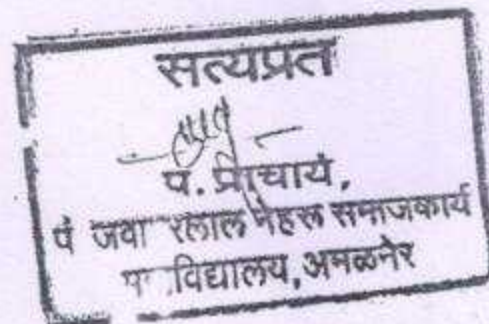 सत्यप्रत
प. प्राचार्य,
पं जवा रलाल नेहरू समाजकार्य
विद्यालय, अमळनेर